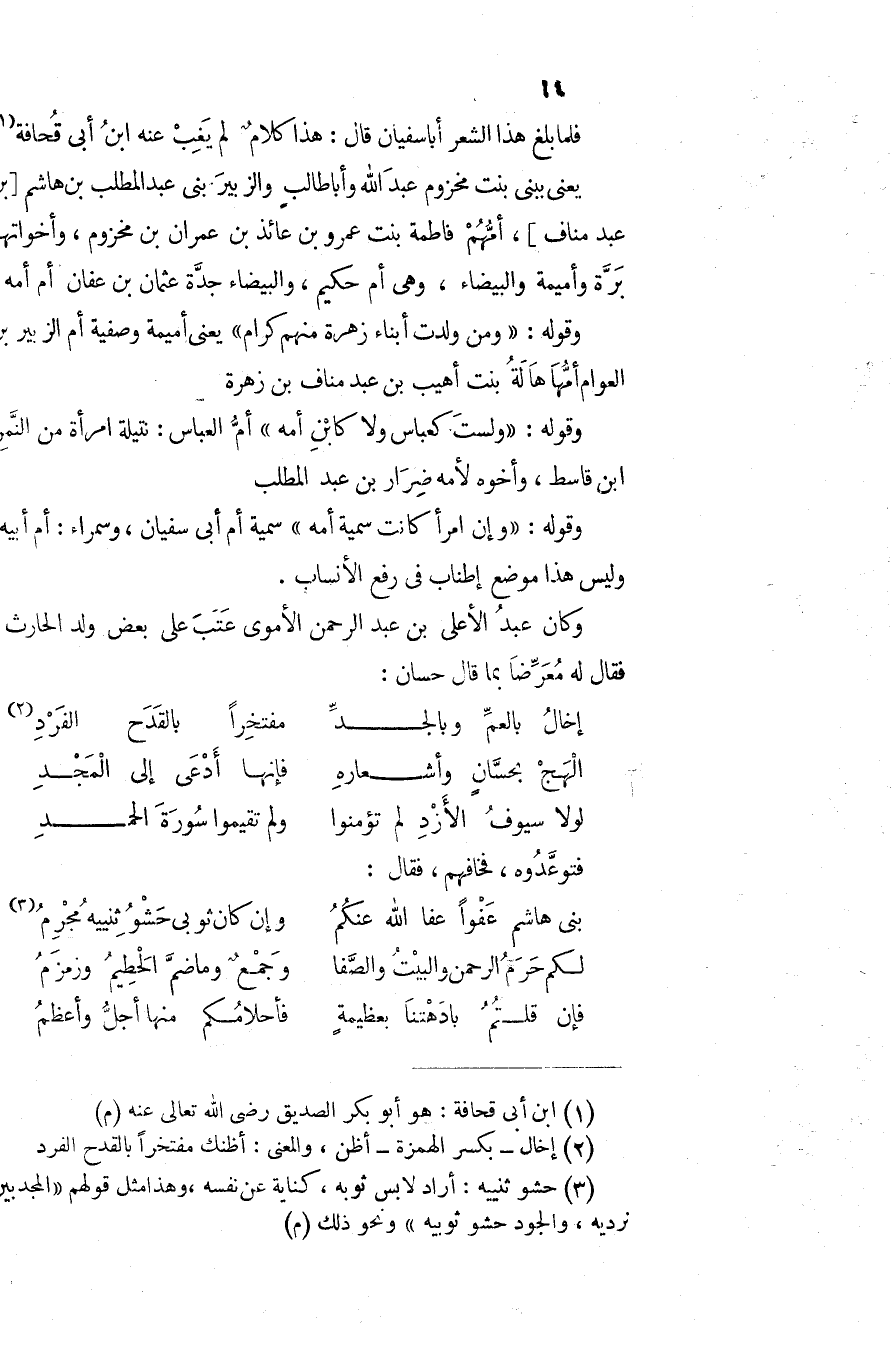 ١٤
فلما بلغ هذا الشعر أبا سفيان قال : هذا كلامٌ لم يَغِبْ عنه ابنُ أبى قُحافة (١
يعنى ببنى بنت مخزوم عبدَ الله وأبا طالبٍ والزبيرَ بنى عبد المطلب بن هاشم [بن
عبد مناف ] ، أمُّهُمْ فاطمة بنت عمرو بن عائذ بن عمران بن مخزوم ، وأخواتها
بَرَّة وأميمة والبيضاء ، وهى أم حكيم ، والبيضاء جدَّة عثمان بن عفان أم أمه
وقوله : « ومن ولدت أبناء زهرة منهم كرام» يعنى أميمة وصفية أم الزبير بن
العوام أمُّهَا هَالَةُ بنت أهيب بن عبد مناف بن زهرة
وقوله : «ولستَ كعباس ولا كابْنِ أمه » أمُّ العباس : نتيلة امرأة من النَّمِر
ابن قاسط ، وأخوه لأمه ضِرَار بن عبد المطلب
وقوله : «وإن امرأ كانت سمية أمه » سمية أم أبى سفيان ، وسمراء : أم أبيه
وليس هذا موضع إطناب فى رفع الأنساب .
وكان عبدُ الأعلى بن عبد الرحمن الأموى عَتَبَ على بعض ولد الحارث
فقال له مُعَرِّضاً بما قال حسان :
إخالُ بالعمِّ وبالجـــــدِّ مفتخِراً بالقَدَح الفَرْدِ (٢)
الْهَجْ بحسَّانٍ وأشــعارهِ فإنهـا أَدْعَى إلى الْمَجْـدِ
لولا سيوفُ الأَزْدِ لم تؤمنوا ولم تقيموا سُورَةَ الحمــدِ
فتوعَّدُوه ، فخافهم ، فقال :
بنى هاشم عَفْواً عفا الله عنكمُ وإن كان ثوبى حَشْوُ ثِنييه مُجْرِمُ (٣)
لـكم حَرَمُ الرحمن والبيْتُ والصَّفا وَجَمْعٌ وما ضمَّ الحَطِيمُ وزمزمُ
فإن قلـتُمُ بادَهْتنَا بعظيمةٍ فأحلامُـكم منها أجلُّ وأعظمُ
(١) ابن أبى قحافة : هو أبو بكر الصديق رضى الله تعالى عنه (م)
(٢) إخال ـ بكسر الهمزة ـ أظن ، والمعنى : أظنك مفتخراً بالقدح الفرد
(٣) حشو ثنييه : أراد لابس ثوبه ، كناية عن نفسه ، وهذا مثل قولهم «المجد بين
برديه ، والجود حشو ثوبيه » ونحو ذلك (م)